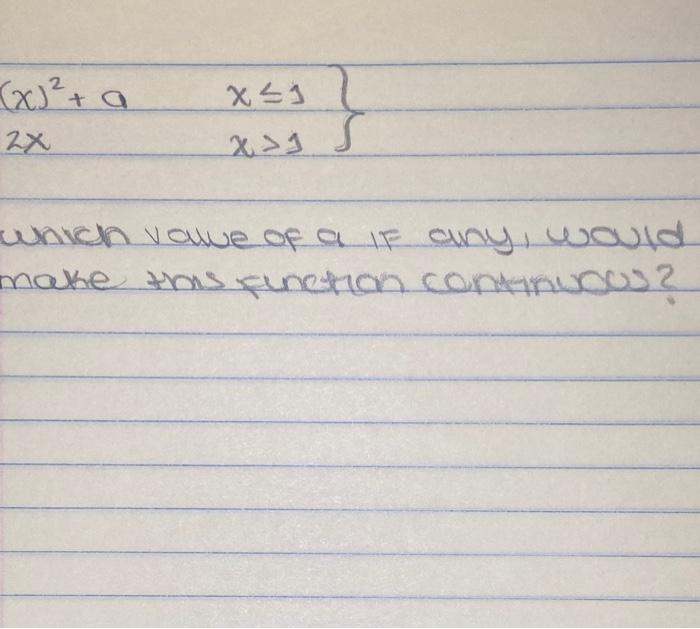 (x)²+ a x≤1 }
2x x>1
which value of a IF any, would
make this function continuous?